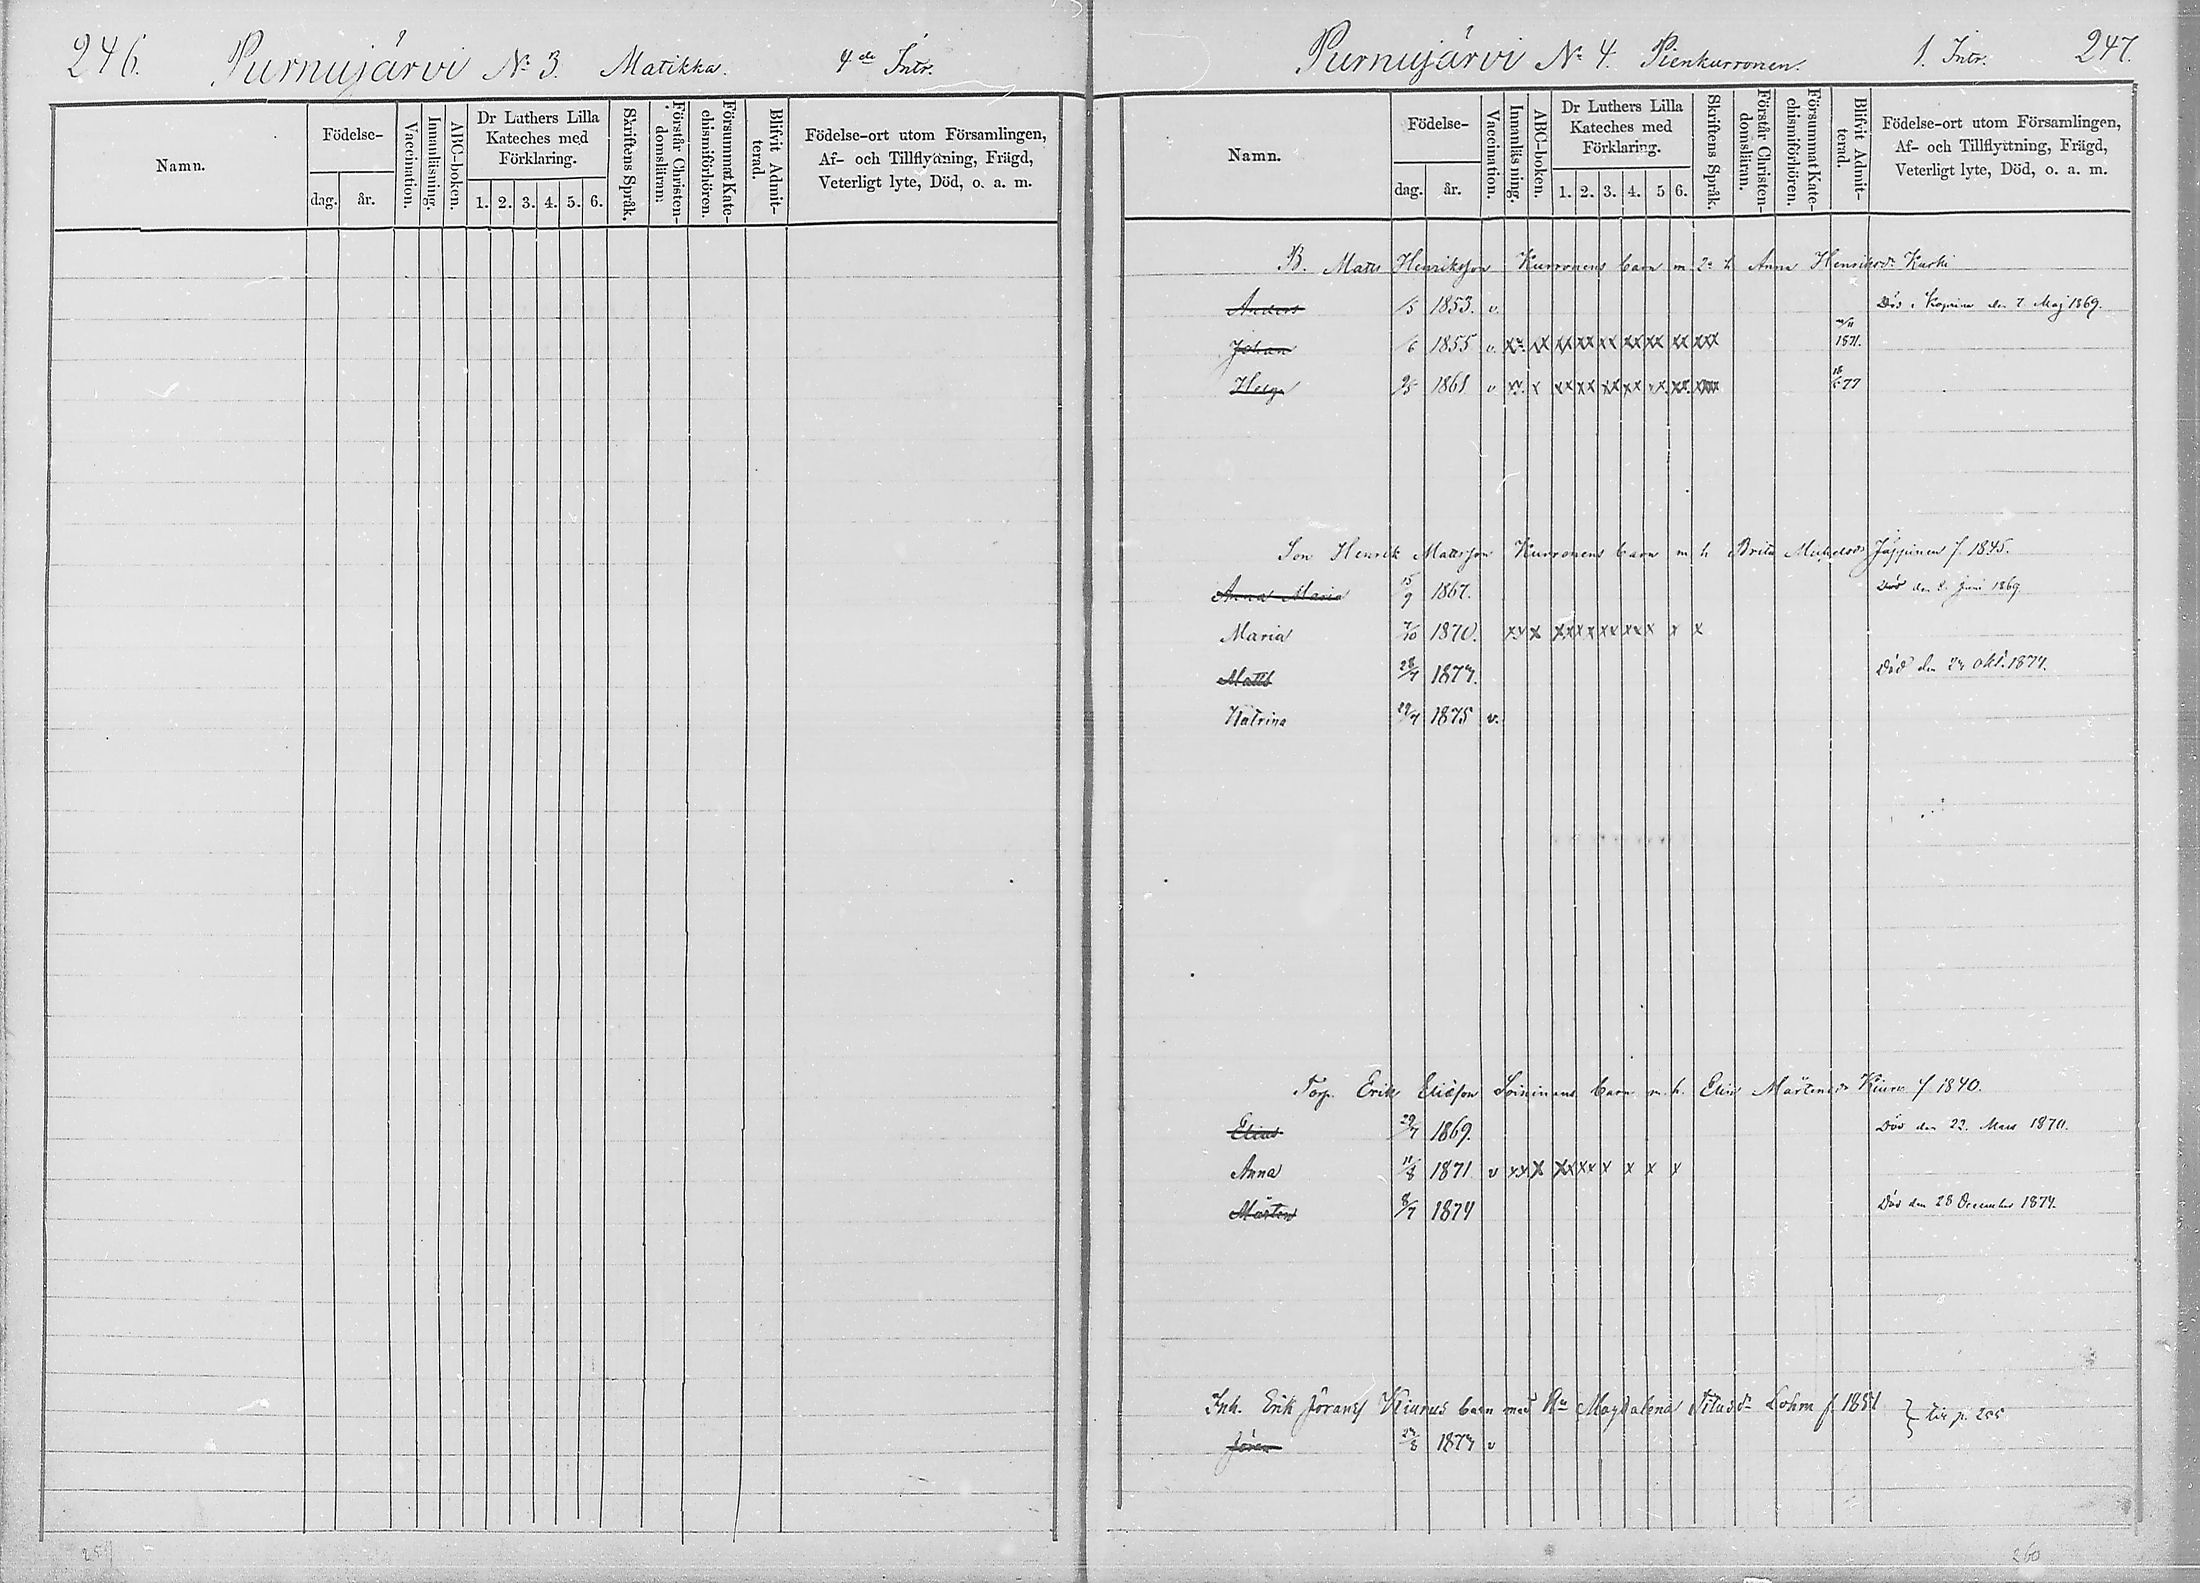 246. Purnujärvi № 3. Matikka. 4de Intr.
Namn.
Födelse-
dag. år.
Vaccination.
Innanläsning.
ABC-boken.
Dr Luthers Lilla
Kateches med
Förklaring.
1. 2. 3. 4. 5. 6.
Skriftens Språk.
Förstår Christen-
domsläran.
Försummat Kate-
chismiförhören.
Blifvit Admit-
terad.
Födelse-ort utom Församlingen,
Af- och Tillflyttning, Frägd,
Veterligt lyte, Död, o. a. m.
Purnujärvi № 4. Pienkurronen. 1. Intr. 247.
Namn.
Födelse-
dag. år.
Vaccination.
Innanläsning.
ABC-boken.
Dr Luthers Lilla
Kateches med
Förklaring.
1. 2. 3. 4. 5 6.
Skriftens Språk.
Förstår Christen-
domsläran.
Försummat Kate-
chismiförhören.
Blifvit Admit-
terad.
Födelse-ort utom Församlingen,
Af- och Tillflyttning, Frägd,
Veterligt lyte, Död, o. a. m.
B. Matts Henriksson Kurronens barn m 2a h Anna Henriksdr
Anders /5 1853. v. Död i den 7 Maj 1869.
Johan /6 1855 v. xx xx xx xx xx xx xx xxx 1871.
1861 v xx x xx xx xx xx xx xx 77
Son Henrik Mattsson Kurronens barn m h Brita Jäppinen f. 1845.
Anna Maria 15/9 1867. Död den 8. Juni 1869
Maria 7/10 1870. xx x xx xx xx xx x x x
Matts 28/7 1874. Död den 24 okt. 1874.
Katrina 29/7 1875 v.
Torp. Erik Eliasson Soininens barn m. h. Elin Mårtensdr Kiuru f 1840.
Elias 29/7 1869. Död den 22. Mars 1870.
Anna 11/8 1871 v xx x xx xx x x x x
Mårten 8/7 1874 Död den 28 December 1874.
Inh. Erik Jöranss Kiurus barn med Hu Magdalena Titusdr Lohm f 1851 } p. 255
Jöran 24/8 1874 v
260